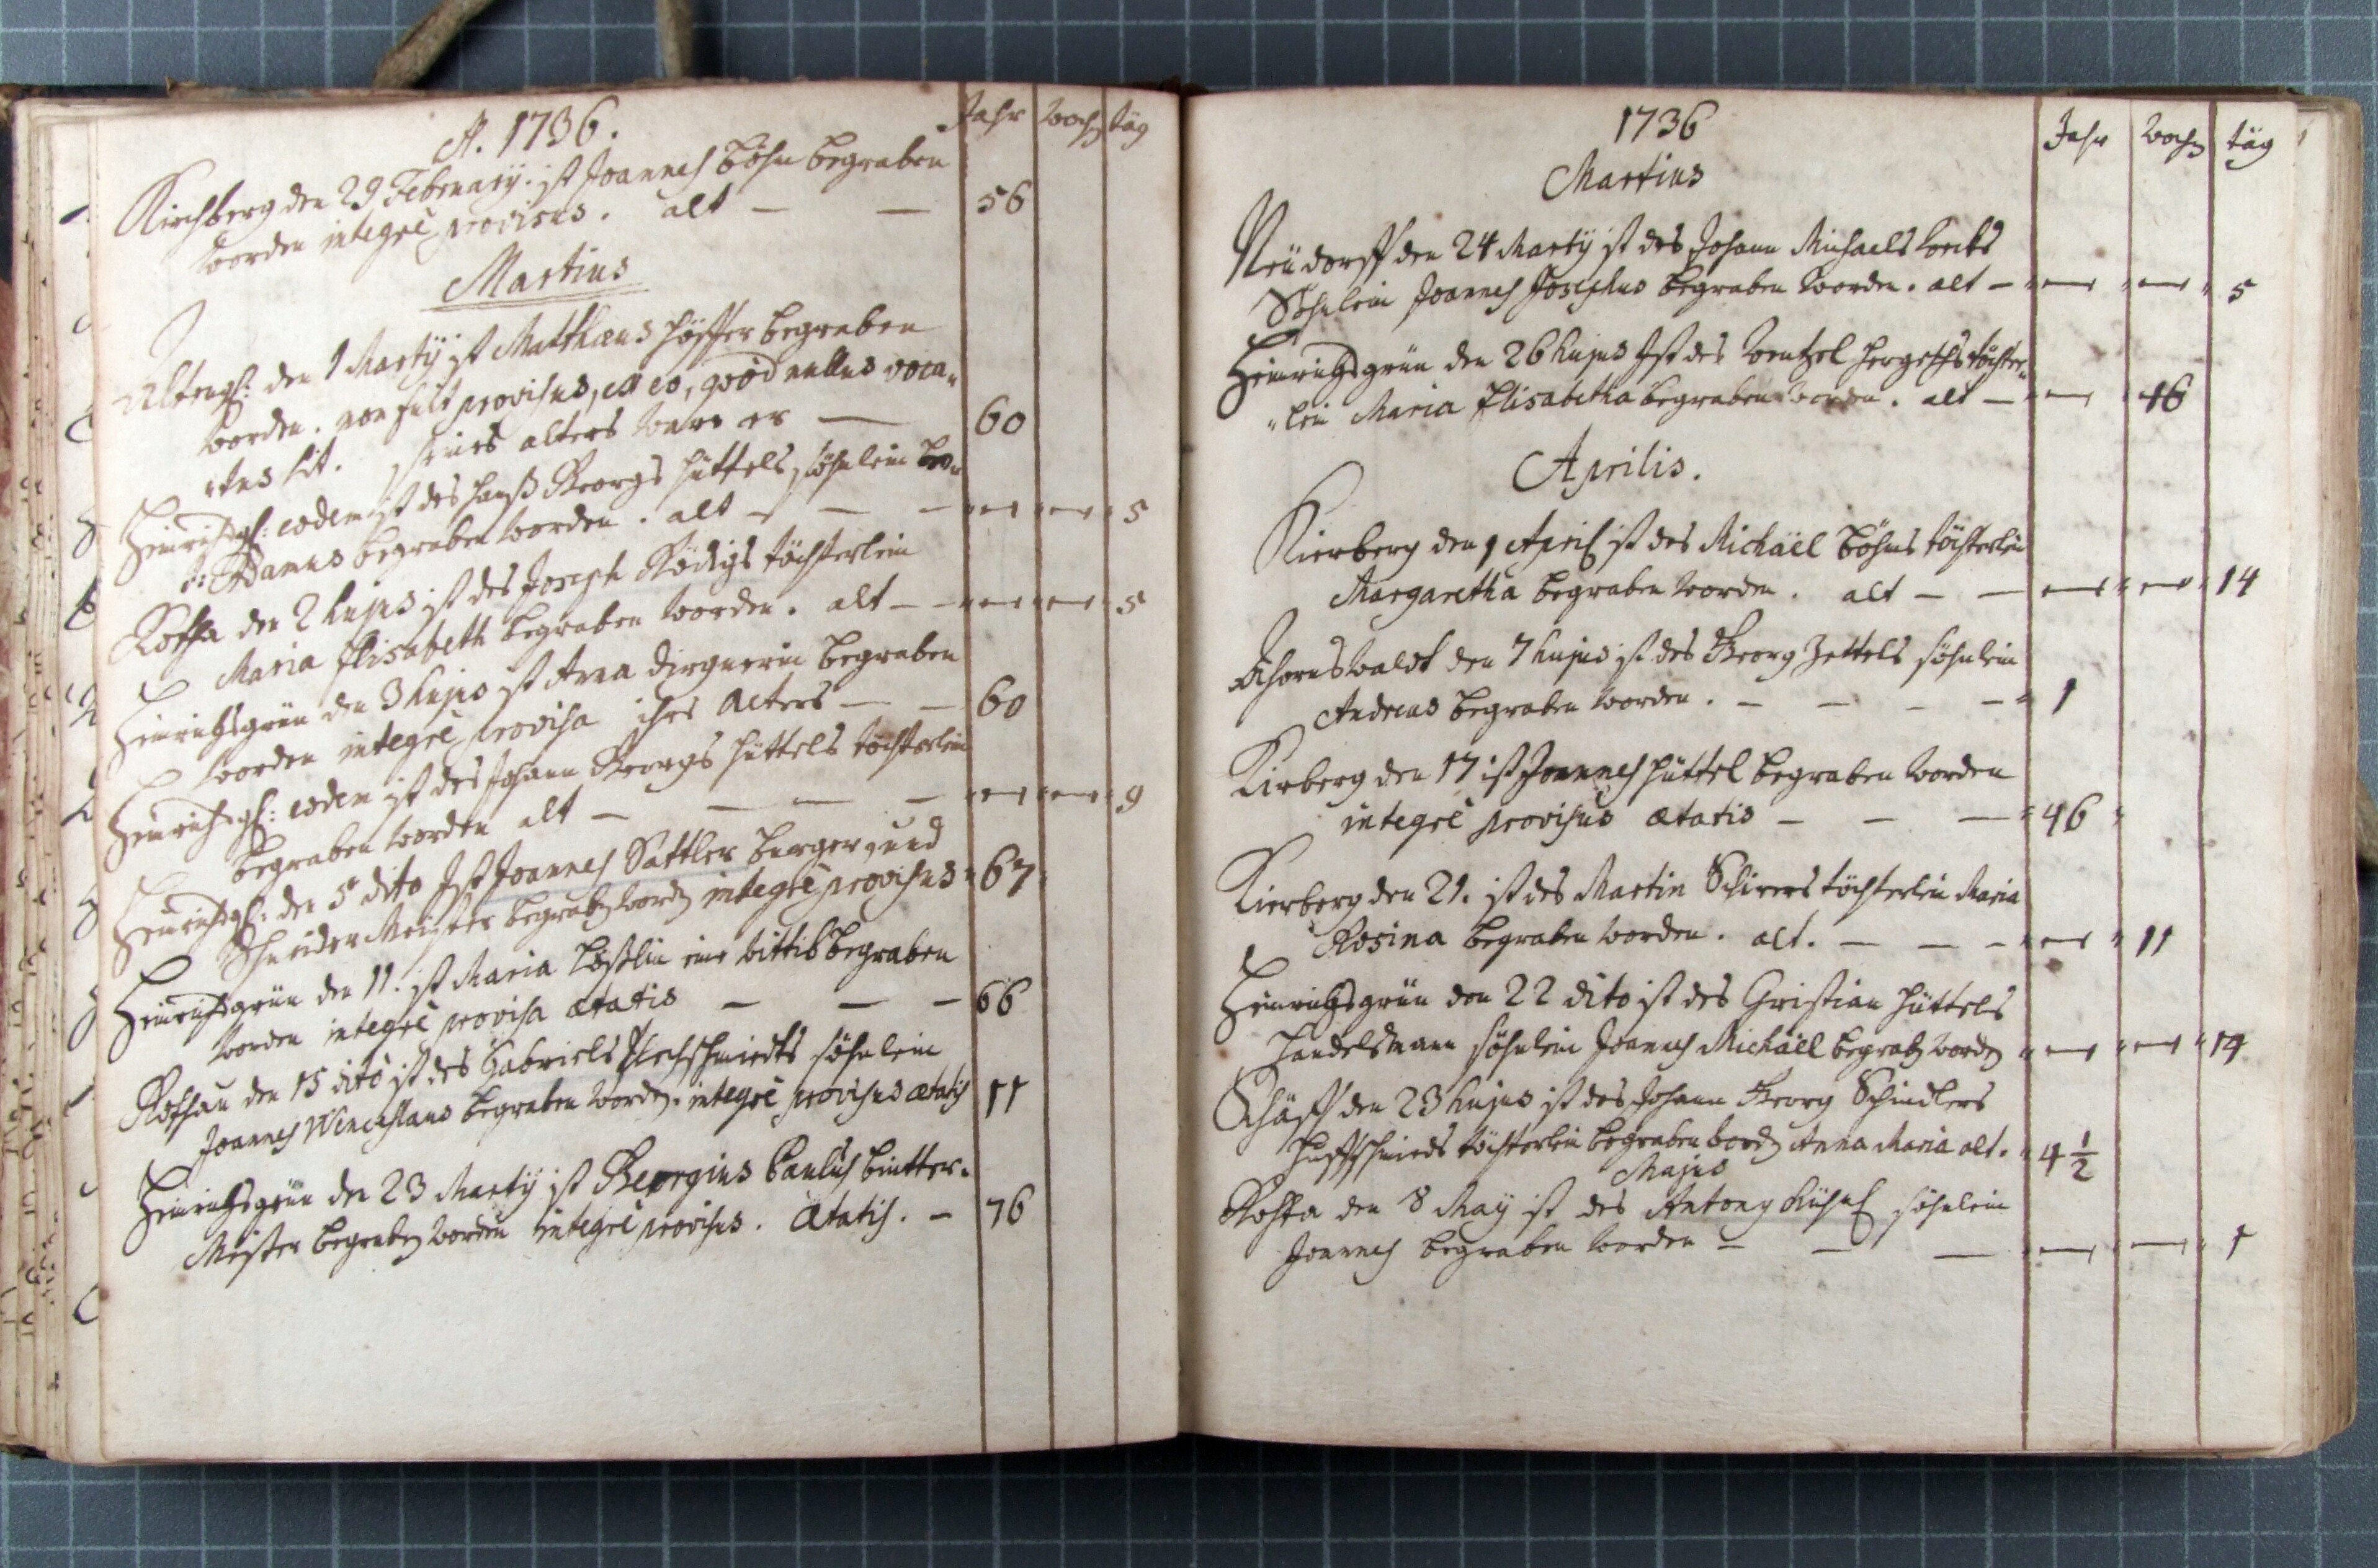 A. 1736.
Jahr Woch täg
Kirchberg den 29 February. ist Joannes Böhm begraben
worden integrè provisus. alt — — 56
Martius
Altengl: den 1 Marty ist Matthaeus begraben
worden. non fuit provisus, ex eo, quòd nullus voca-
tus sit. seines alters ware er — 60
Heinrichsgl: eodem ist des Hanß Georgs Hüttels söhnlein
Adamus begraben worden. alt — — — 5
Rossa den 2 hujus ist des Joseph Rödigs töchterlein
Maria Elisabeth begraben worden. alt — — 5
Heinrichsgrün den 3 hujus ist Anna begraben
worden integrè provisa ihres alters — — 60
Heinrichsgl: eodem ist des Johann Georgs Hüttels töchterlein
begraben worden alt — — — — 9
Heinrichsgl: den 5 dito Ist Joannes Sattler burger und
Schneider Meister begraben worden integrè provisus 67
Heinrichsgrün den 11. ist Maria eine Wittib begraben
worden integrè provisa aetatis — — — 66
Rossau den 15 dito ist des Gabriels söhnlein
Joannes Wenceslaus begraben worden. integrè provisus aetatis 11
Heinrichsgrün den 23 Marty ist Georgius Paulus
Meister begraben worden integrè provisus. Aetatis. — 76
1736
Jahr Woch täg
Martius
Neudorff den 24 Marty ist des Johann Michaels
Söhnlein Joannes Josephus begraben worden. alt — — — 5
Heinrichsgrün den 26 hujus Ist des Wentzel töchter-
lein Maria Elisabetha begraben worden. alt — — 16
Aprilis.
Kierberg den 1 April ist des Michäel Böhms töchterlein
Margaretha begraben worden. alt — — — — 14
Ahornswaldt den 7 hujus ist des Georg Zettels söhnlein
Andreas begraben worden. — — — — 1
Kirberg den 17 ist Joannes Hüttel begraben worden
integrè provisus aetatis — — — 46
Kierberg den 21. ist des Martin Schirers töchterlein Maria
Rosina begraben worden. alt. — — — — 11
Heinrichsgrün den 22 dito ist des Christian Hüttels
Handelsmann söhnlein Joannes Michäel begraben worden — — 14
Schäff den 23 hujus ist des Johann Georg Schindlers
Huffschmieds töchterlein begraben worden Anna Maria alt. 4 1/2
Majus
Rossa den 8 May ist des Antony söhnlein
Joannes begraben worden — — — — — 1